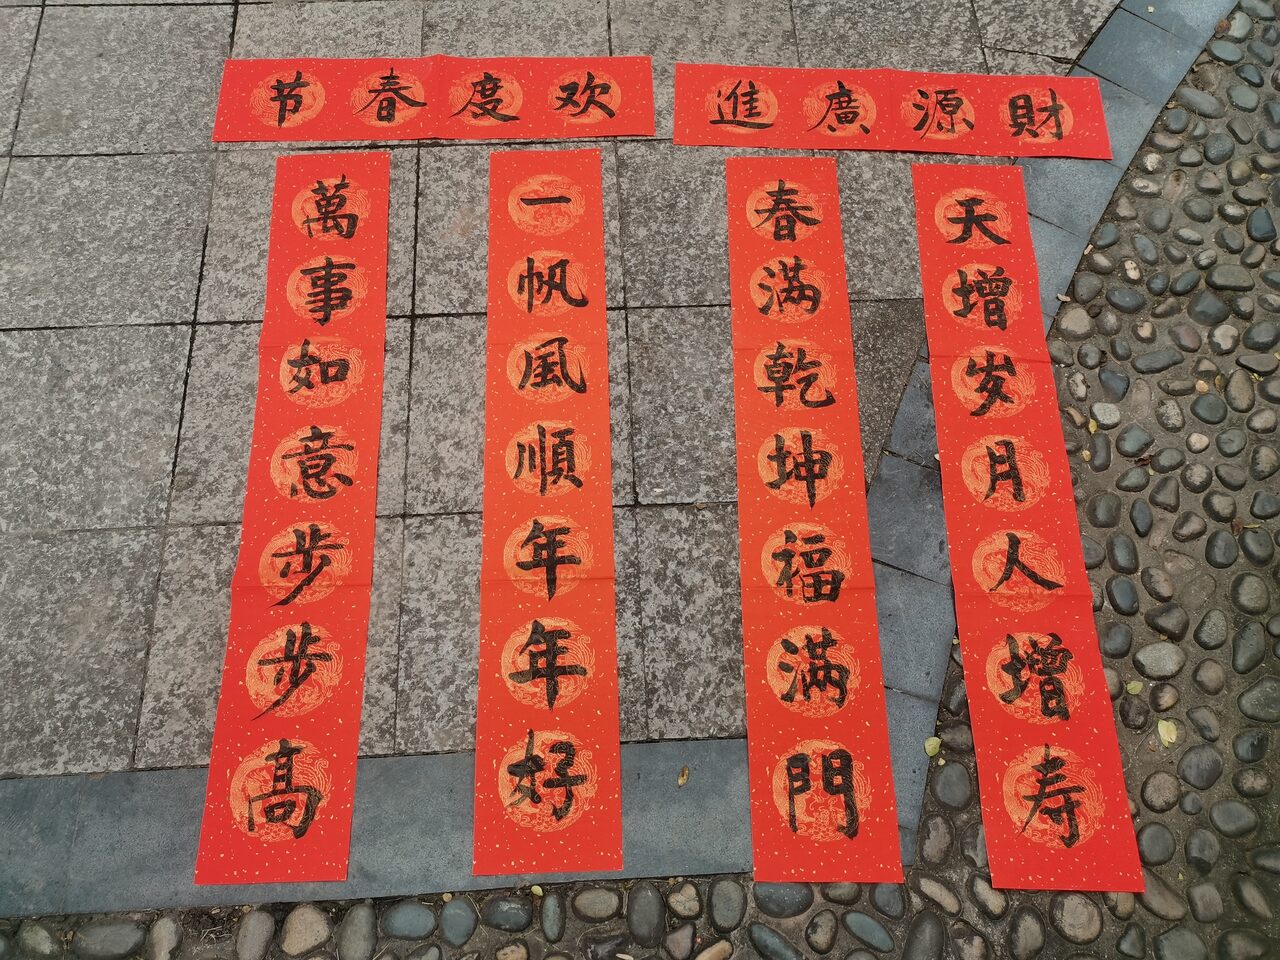 財源廣進
天增岁月人增寿
春满乾坤福满門
欢度春节
一帆風順年年好
萬事如意步步高